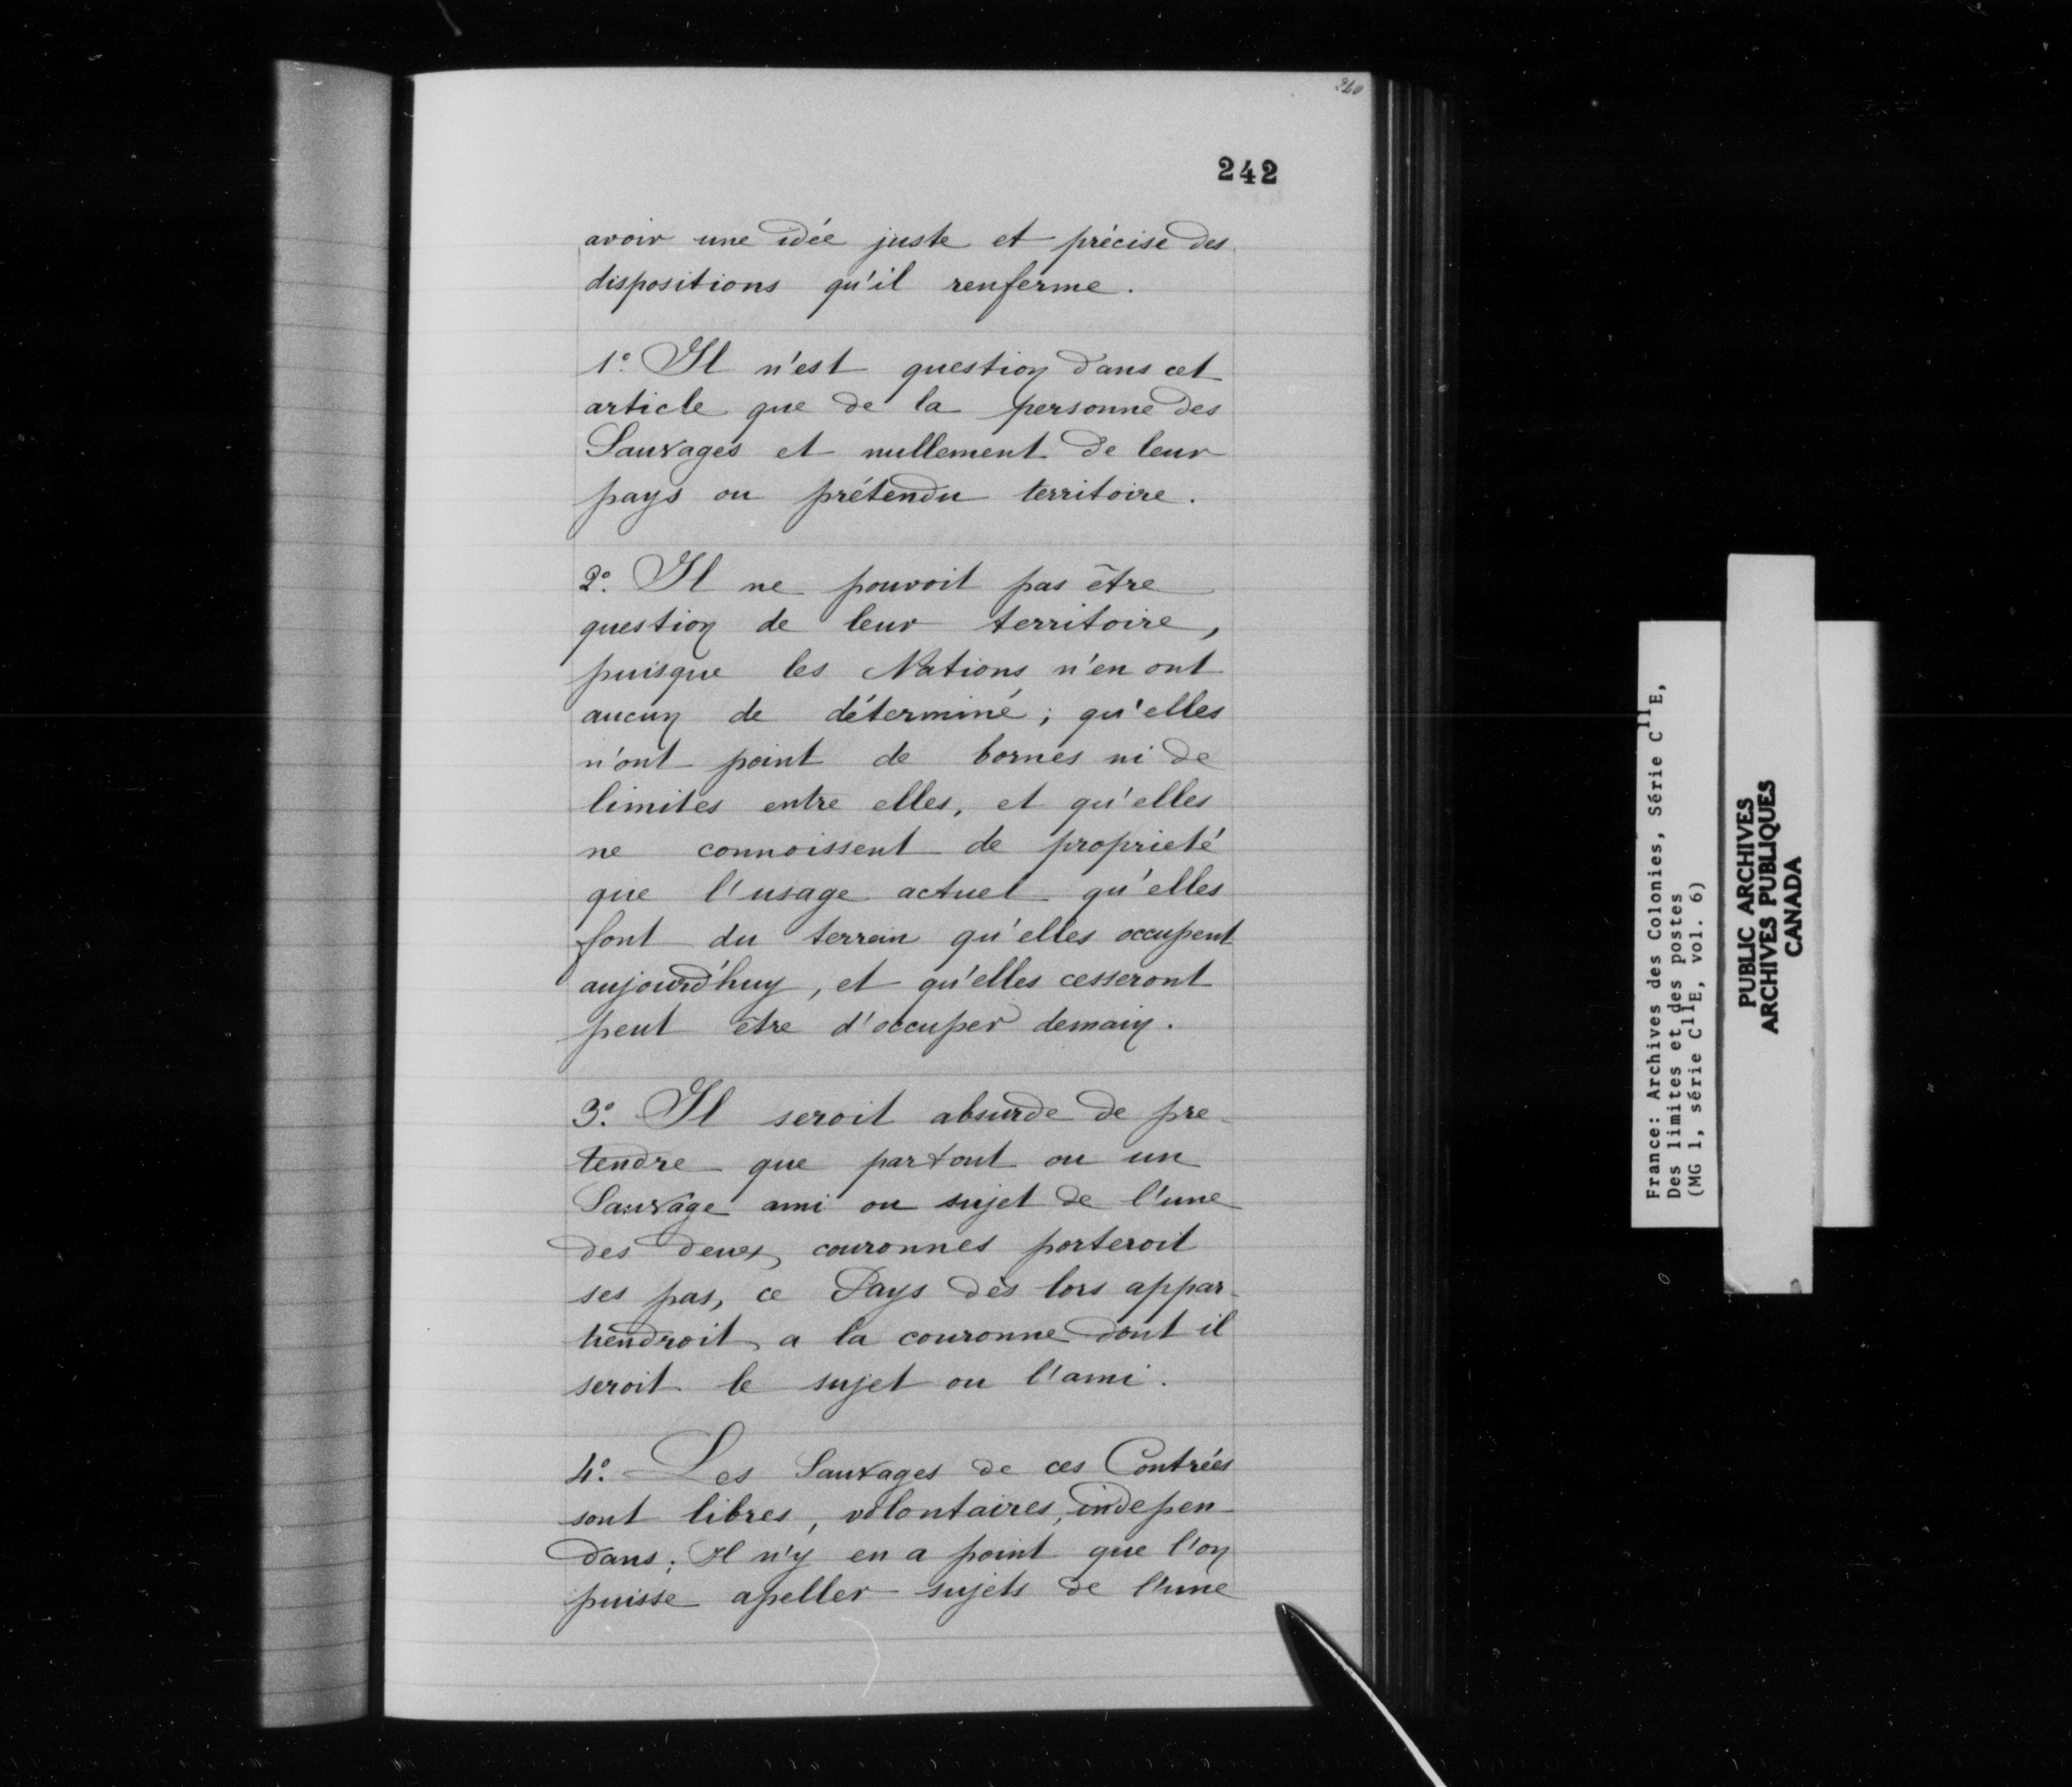 240
242
avoir une idée juste et précise des
dispositions qu'il renferme.
1º. Il n'est question dans cet
article que de la personne des
Sauvages et nullement de leur
pays ou prétendu territoire.
2º. Il ne pouvoit pas être
question de leur territoire,
puisque les Nations n'en ont
aucun de déterminé; qu'elles
n'ont point de bornes ni de
limites entre elles, et qu'elles
ne connoissent de proprieté
que l'usage actuel qu'elles
font du terrein qu'elles occupent
aujourd'huy, et qu'elles cesseront
peut être d'occuper demain.
3º. Il seroit absurde de pre-
tendre que partout ou un
Sauvage ami ou sujet de l'une
des deux couronnes porteroit
ses pas, ce Pays dès lors appar-
tiendroit a la couronne dont il
seroit le sujet ou l'ami.
4º. Les Sauvages de ces Contrées
sont libres, volontaires, indepen-
dans; Il n'y en a point que l'on
puisse apeller sujets de l'une
France: Archives des Colonies, Série C11E,
Des limites et des postes
(MG 1, série C11E, vol. 6)
PUBLIC ARCHIVES
ARCHIVES PUBLIQUES
CANADA